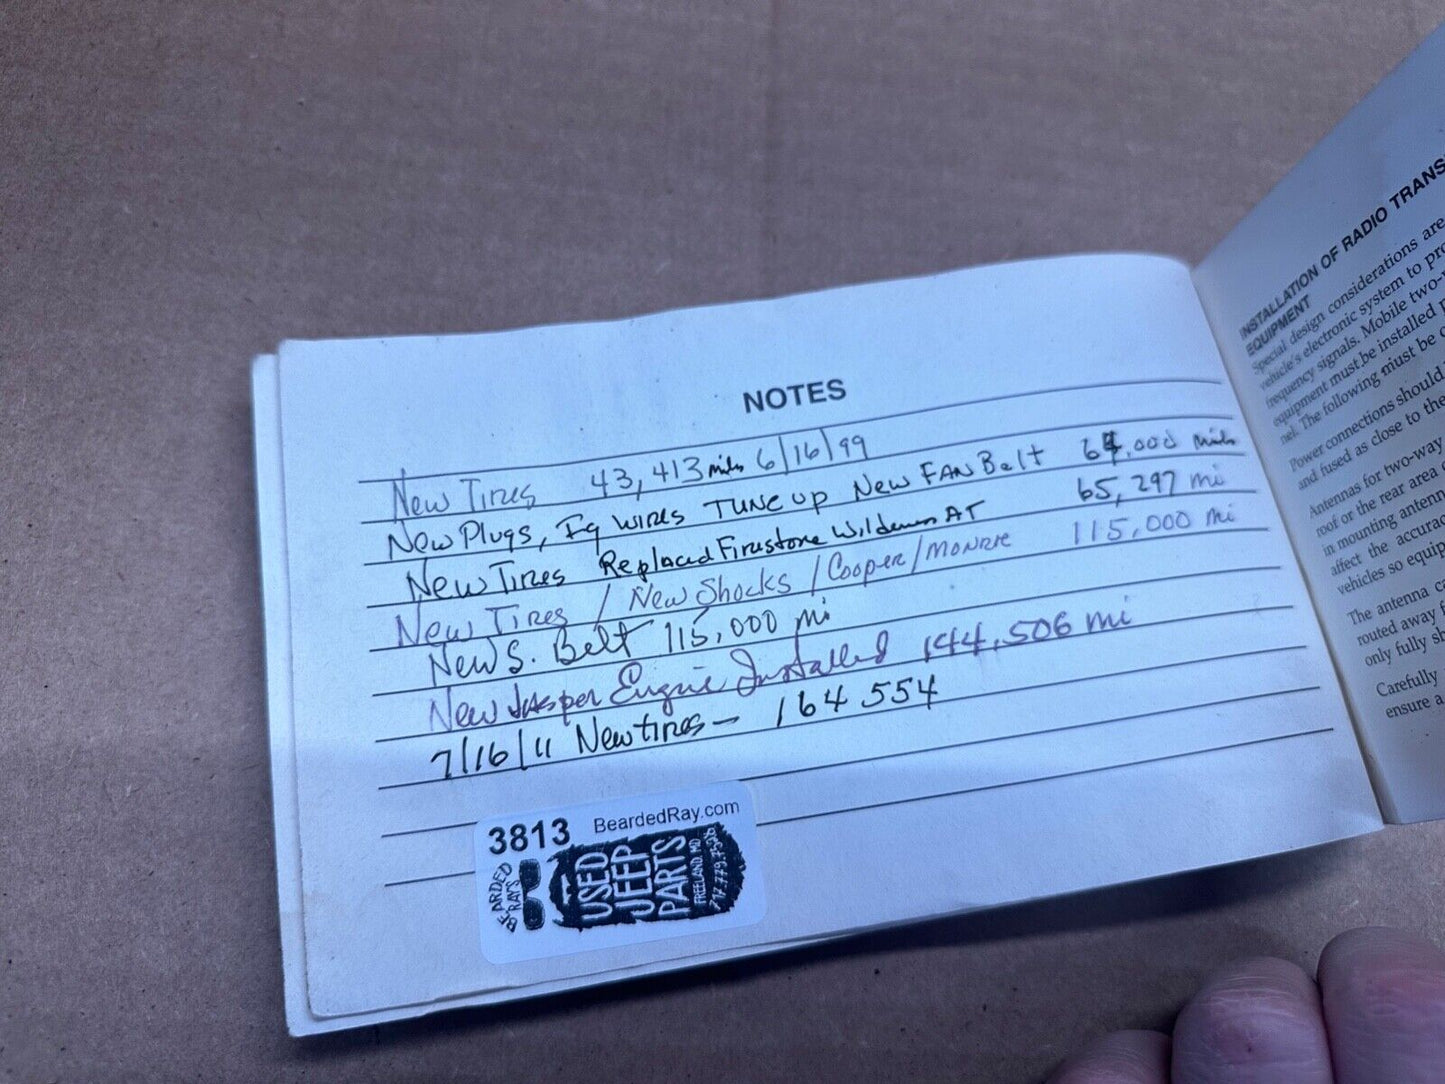 NOTES
New Tires 43,413 miles 6/16/99
New Plugs, Ig wires TUNE up New FAN Belt 64,000 miles
New Tires Replaced Firestone Wilderness AT 65,297 mi
New Tires / New Shocks / Cooper / MONROE 115,000 mi
New S. Belt 115,000 mi
New Jasper Engine Installed 144,506 mi
7/16/11 New tires - 164 554
3813 BeardedRay.com
BEARDED RAY'S
USED JEEP PARTS
FREELAND, MD
INSTALLATION OF RADIO TRANS
EQUIPMENT
Special design considerations are
vehicle's electronic system to pro
frequency signals. Mobile two-
equipment must be installed
nel. The following must be
Power connections should
and fused as close to the
Antennas for two-way
roof or the rear area
in mounting antenn
affect the accurac
vehicles so equip
The antenna c
routed away f
only fully sh
Carefully
ensure a